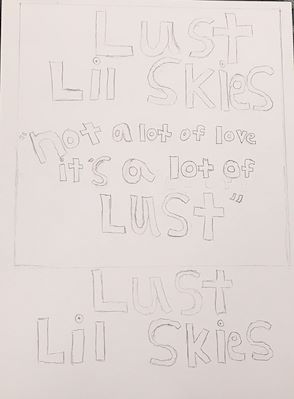 Lust
Lil Skies
"not a lot of love
it's a lot of
LUSt"
Lust
Lil Skies